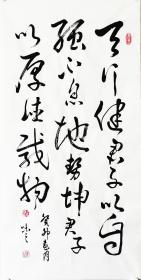 天行健君子以自
强不息地势坤君子
以厚德载物
癸卯